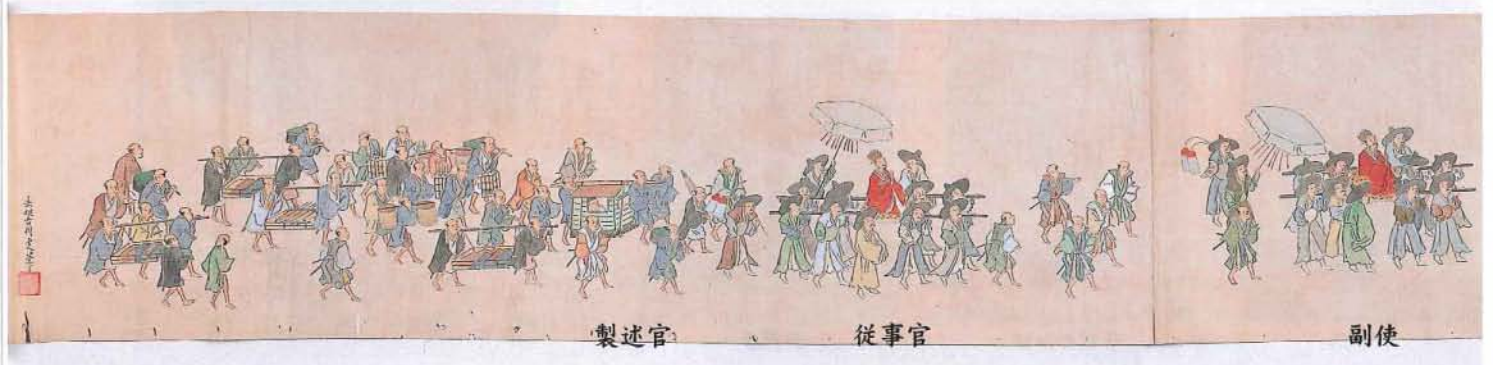 製述官
従事官
副使